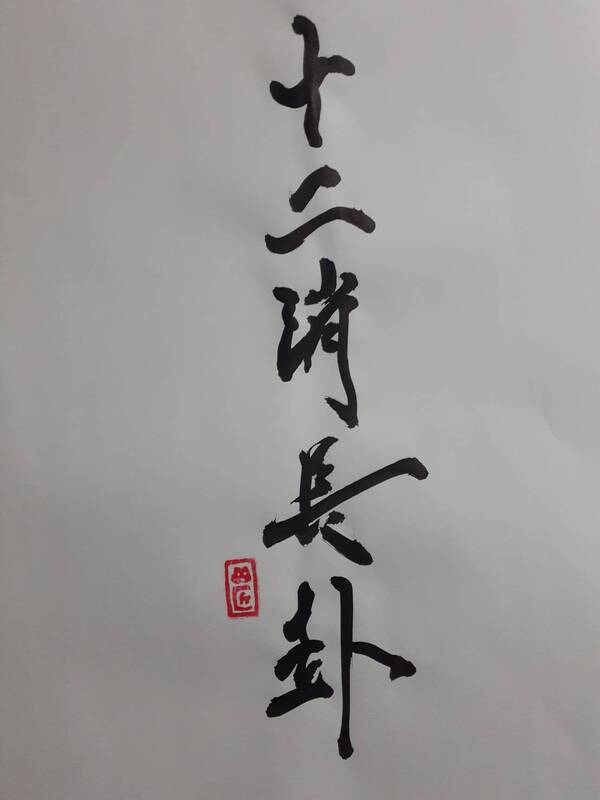 十二消長卦